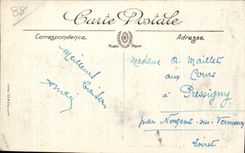 88
Carte Postale
Correspondance
Adresse
Meilleurs
Madame A Maillet
aux Cours
à Pressigny
par Nogent-sur-Vernisson
Loiret